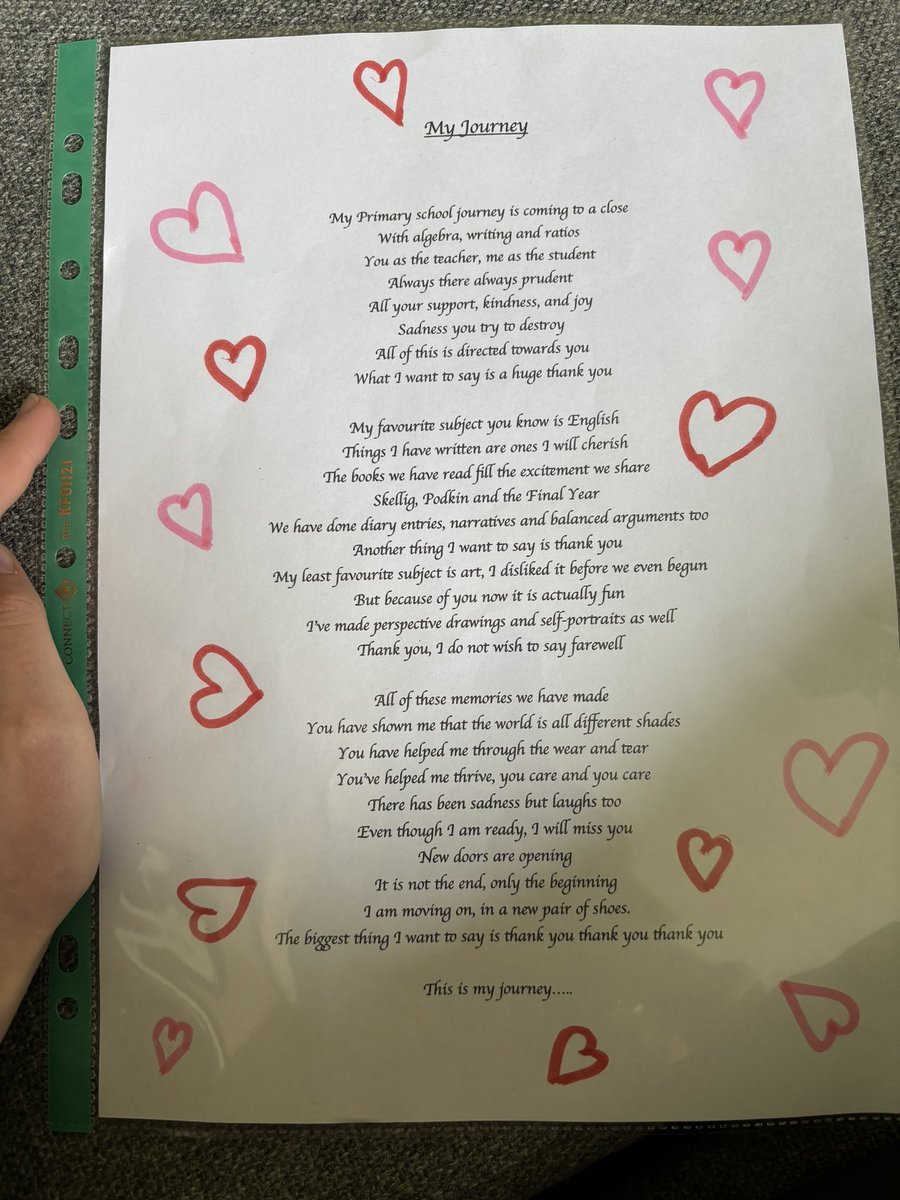 My Journey
My Primary school journey is coming to a close
With algebra, writing and ratios
You as the teacher, me as the student
Always there always prudent
All your support, kindness, and joy
Sadness you try to destroy
All of this is directed towards you
What I want to say is a huge thank you
My favourite subject you know is English
Things I have written are ones I will cherish
The books we have read fill the excitement we share
Skellig, Podkin and the Final Year
We have done diary entries, narratives and balanced arguments too
Another thing I want to say is thank you
My least favourite subject is art, I disliked it before we even begun
But because of you now it is actually fun
I've made perspective drawings and self-portraits as well
Thank you, I do not wish to say farewell
All of these memories we have made
You have shown me that the world is all different shades
You have helped me through the wear and tear
You've helped me thrive, you care and you care
There has been sadness but laughs too
Even though I am ready, I will miss you
New doors are opening
It is not the end, only the beginning
I am moving on, in a new pair of shoes.
The biggest thing I want to say is thank you thank you thank you
This is my journey.....
CONNECT REF: KF01121